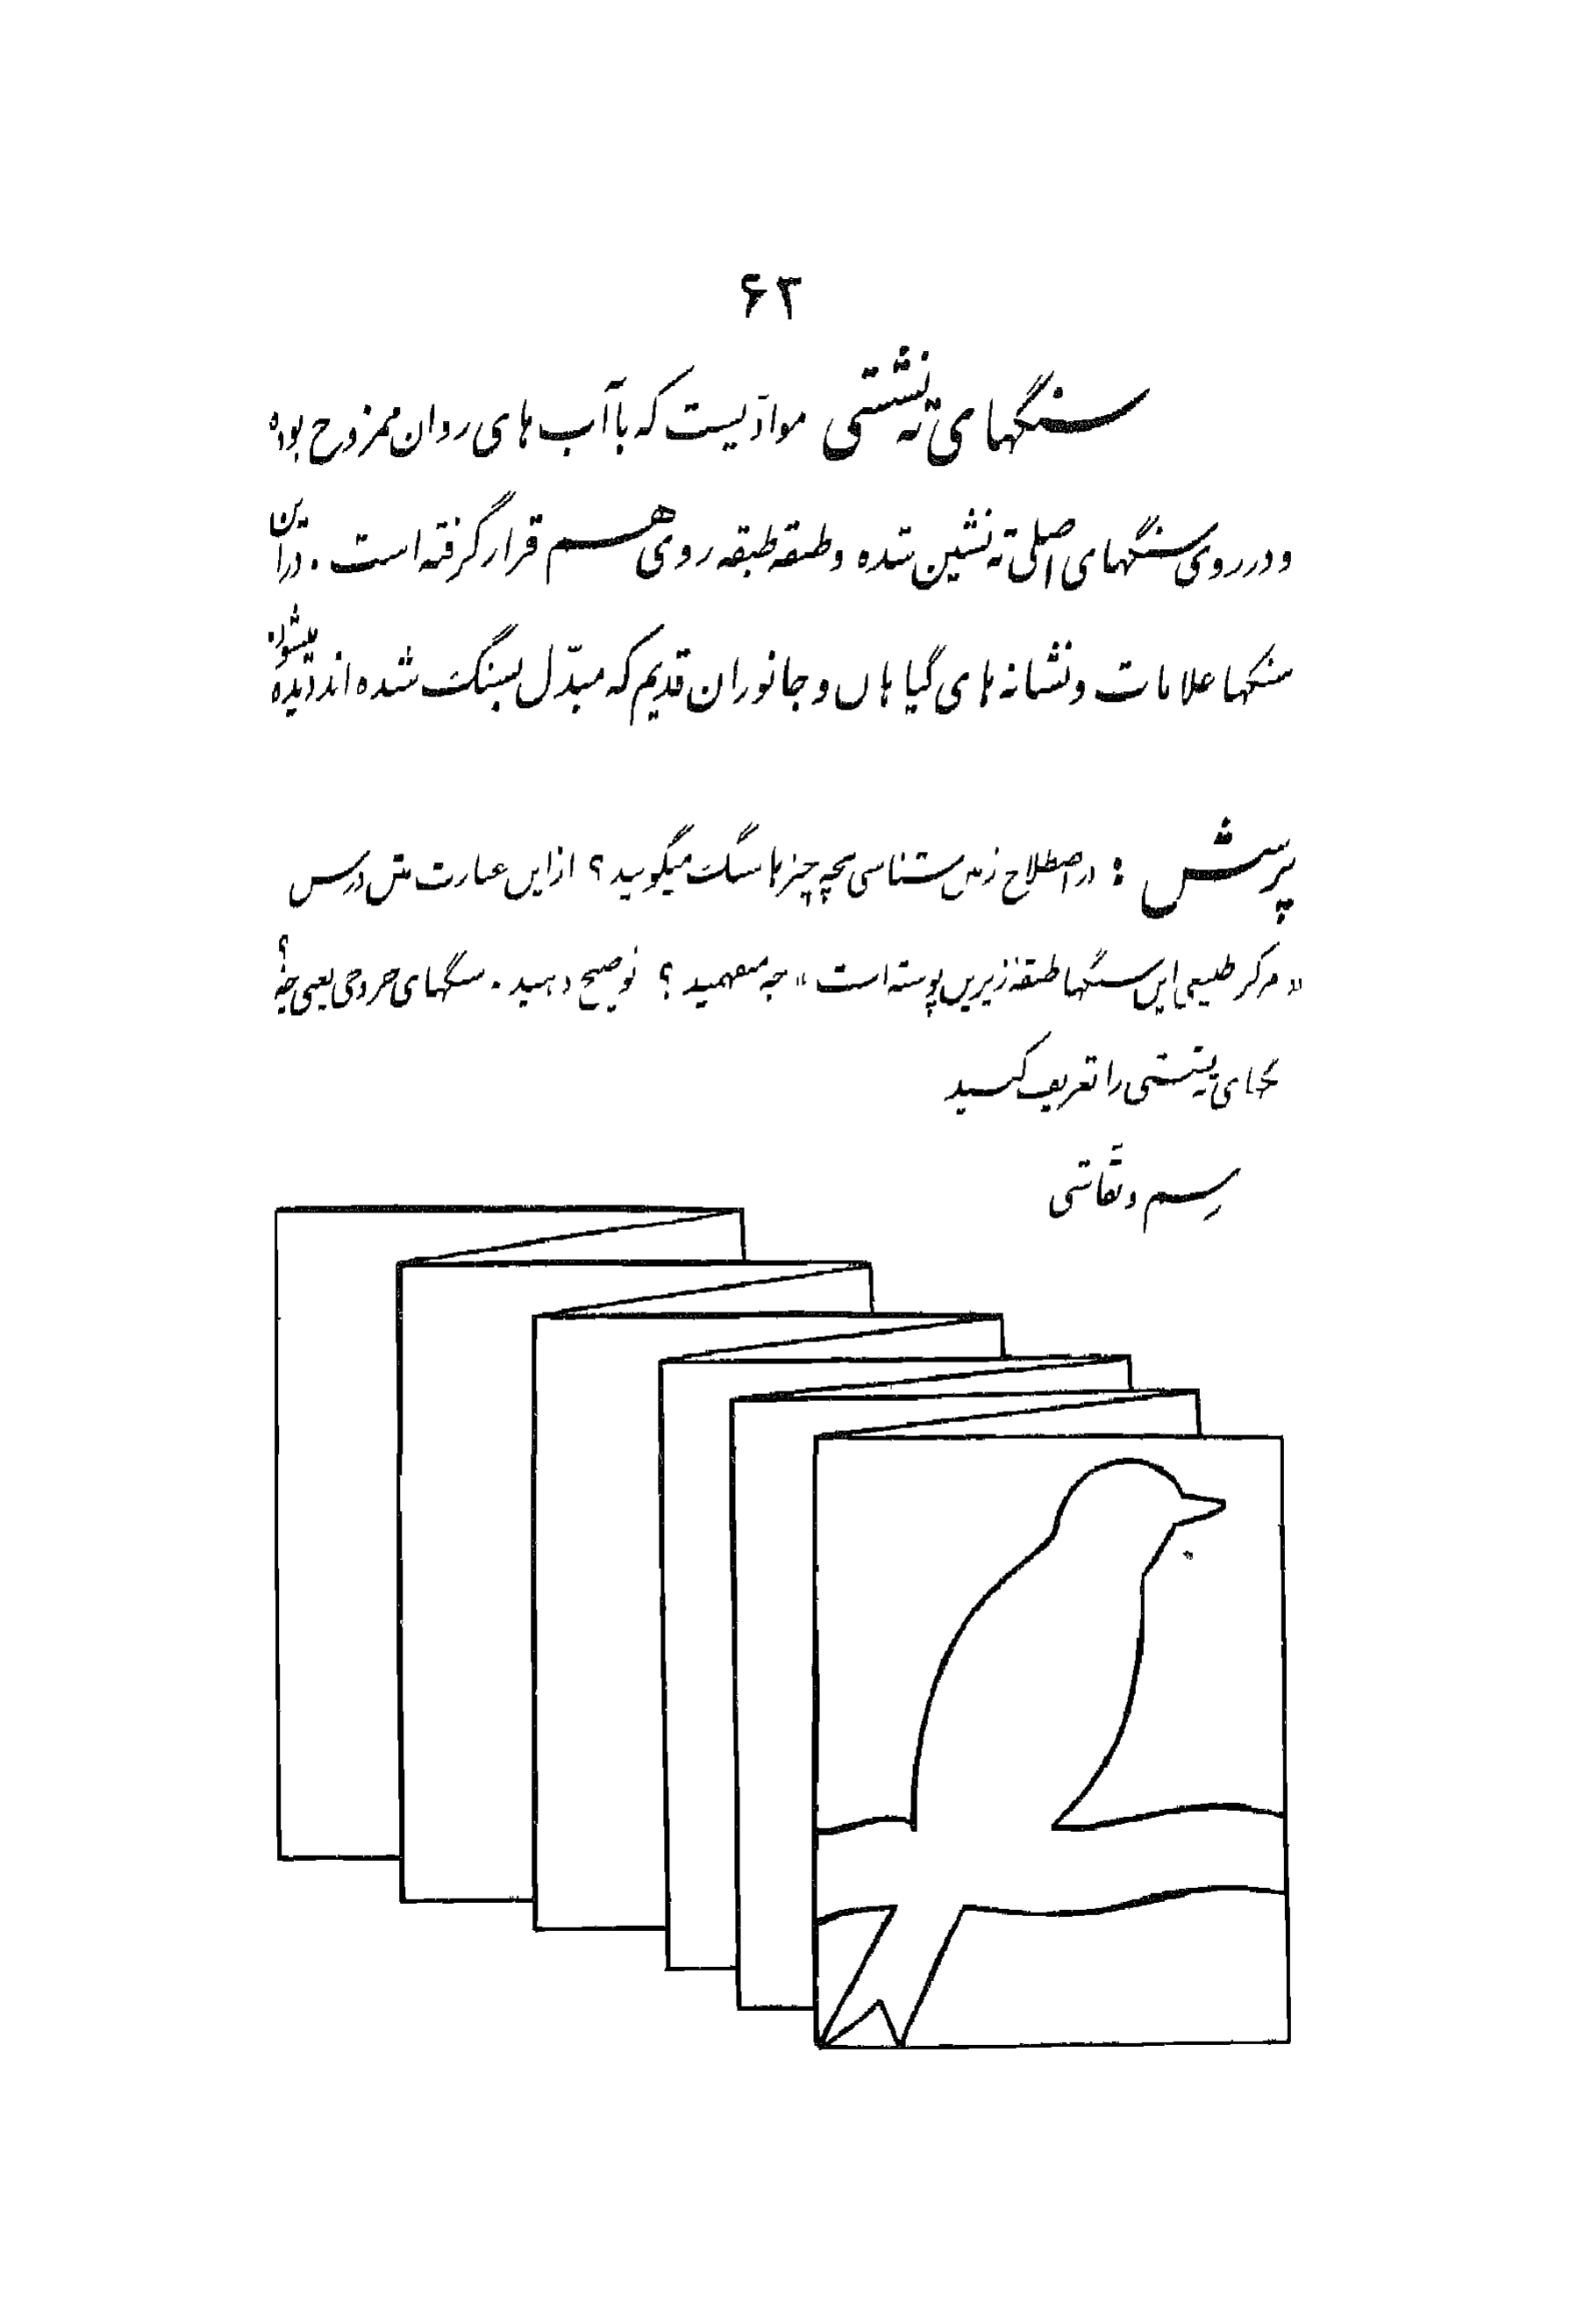 ۶۲
سنگهای ته نشستی موادیست که با آب های روان ممزوج بوده
و در روی سنگهای اصلی ته نشین شده و طبقه طبقه روی هم قرار گرفته است . در این
سنگها علامات و نشانه های گیاهان و جانوران قدیم که مبدّل بسنگ شده اند دیده میشود
پرسش : در اصطلاح زمین شناسی بچه چیزها سنگ میگویید ؟ از این عبارت متن درس
« مرکز طبیعی این سنگها طبقهٔ زیرین پوسته است » چه میفهمید ؟ توضیح دهید . سنگهای خروجی یعنی چه ؟
سنگهای ته نشستی را تعریف کنید
رسم و نقّاشی